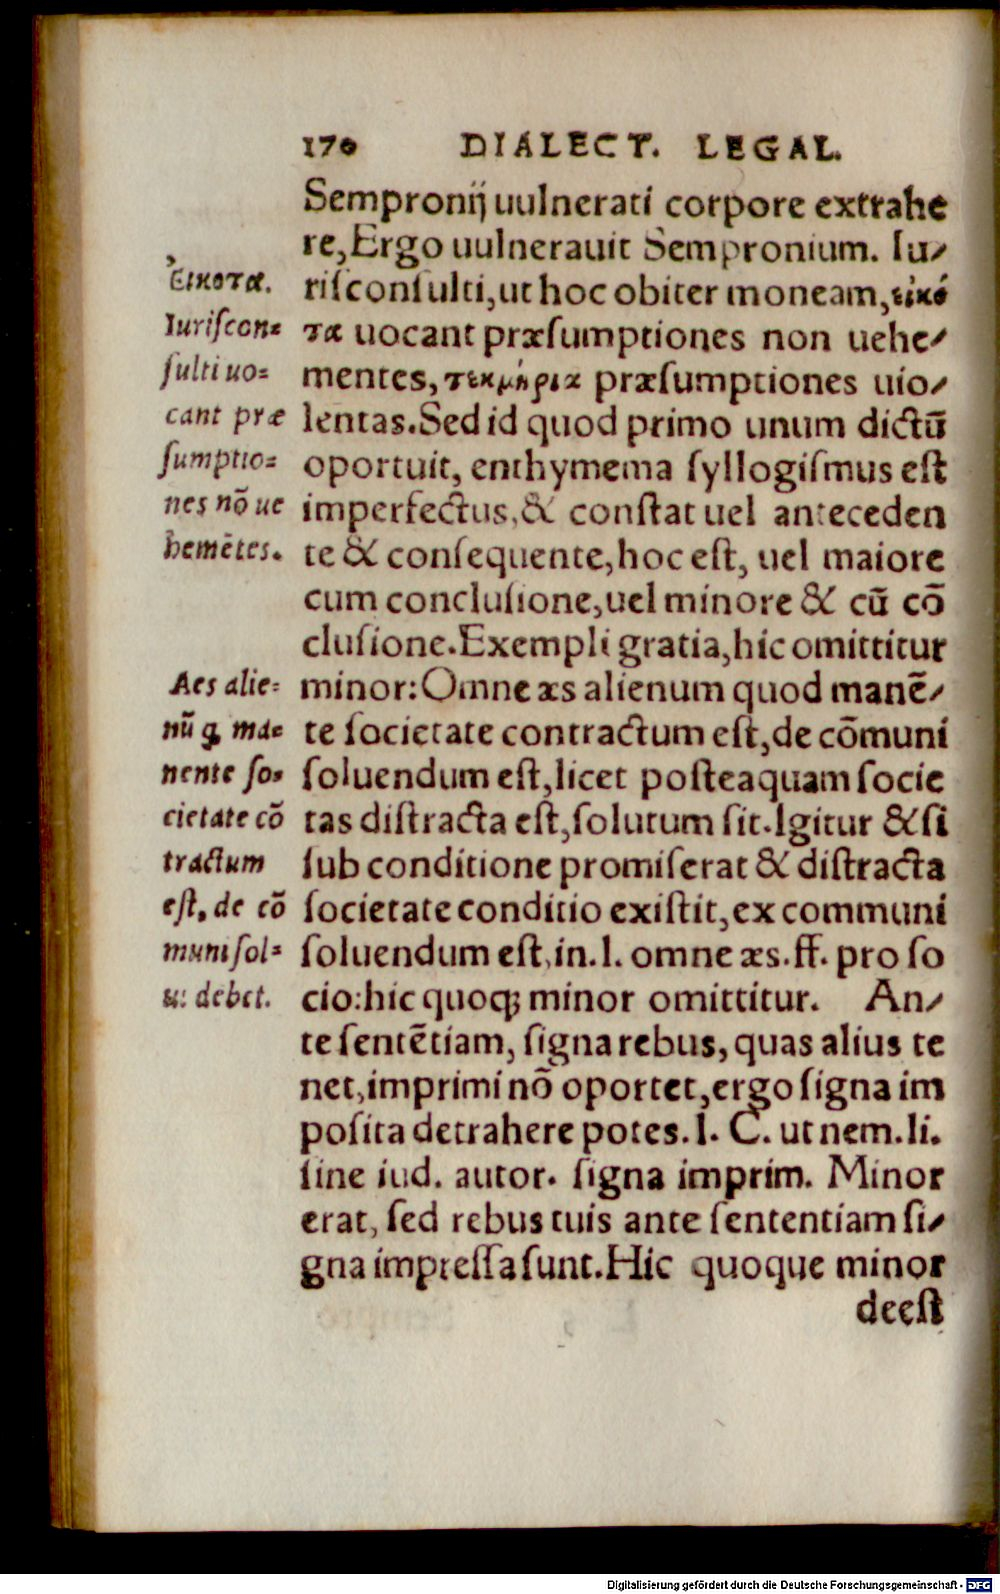 170 DIALECT. LEGAL.
Sempronij uulnerati corpore extrahe
re, Ergo uulnerauit Sempronium. Iu-
riſconſulti, ut hoc obiter moneam, εἰκό
τα uocant præſumptiones non uehe-
mentes, τεκμήρια præſumptiones uio-
lentas. Sed id quod primo unum dictū
oportuit, enthymema ſyllogiſmus eſt
imperfectus, & conſtat uel anteceden
te & conſequente, hoc eſt, uel maiore
cum concluſione, uel minore & cū cō
cluſione. Exempli gratia, hic omittitur
minor: Omne æs alienum quod manē-
te ſocietate contractum eſt, de cōmuni
ſoluendum eſt, licet poſteaquam ſocie
tas diſtracta eſt, ſolutum ſit. Igitur & ſi
ſub conditione promiſerat & diſtracta
ſocietate conditio exiſtit, ex communi
ſoluendum eſt, in. l. omne æs. ff. pro ſo
cio: hic quoqꝫ minor omittitur. An-
te ſentētiam, ſigna rebus, quas alius te
net, imprimi nō oportet, ergo ſigna im
poſita detrahere potes. l. C. ut nem. li.
ſine iud. autor. ſigna imprim. Minor
erat, ſed rebus tuis ante ſententiam ſi-
gna impreſſa ſunt. Hic quoque minor
deeſt
Εἰκοτα.
Iuriſcon-
ſulti uo-
cant præ
ſumptio-
nes nō ue
hemētes.
Aes alie-
nū ꝗ ma-
nente ſo-
cietate cō
tractum
eſt, de cō
muni ſol-
ui debet.
Digitalisierung gefördert durch die Deutsche Forschungsgemeinschaft - DFG